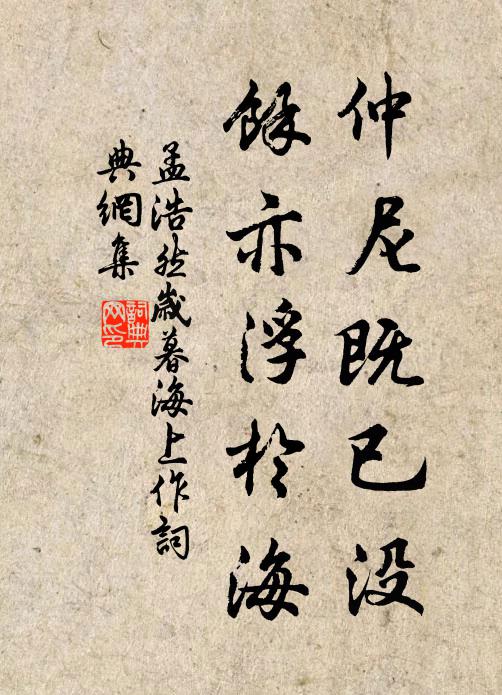 仲尼既已没
餘亦浮於海
孟浩然歲暮海上作詞
典網集
詞典網印